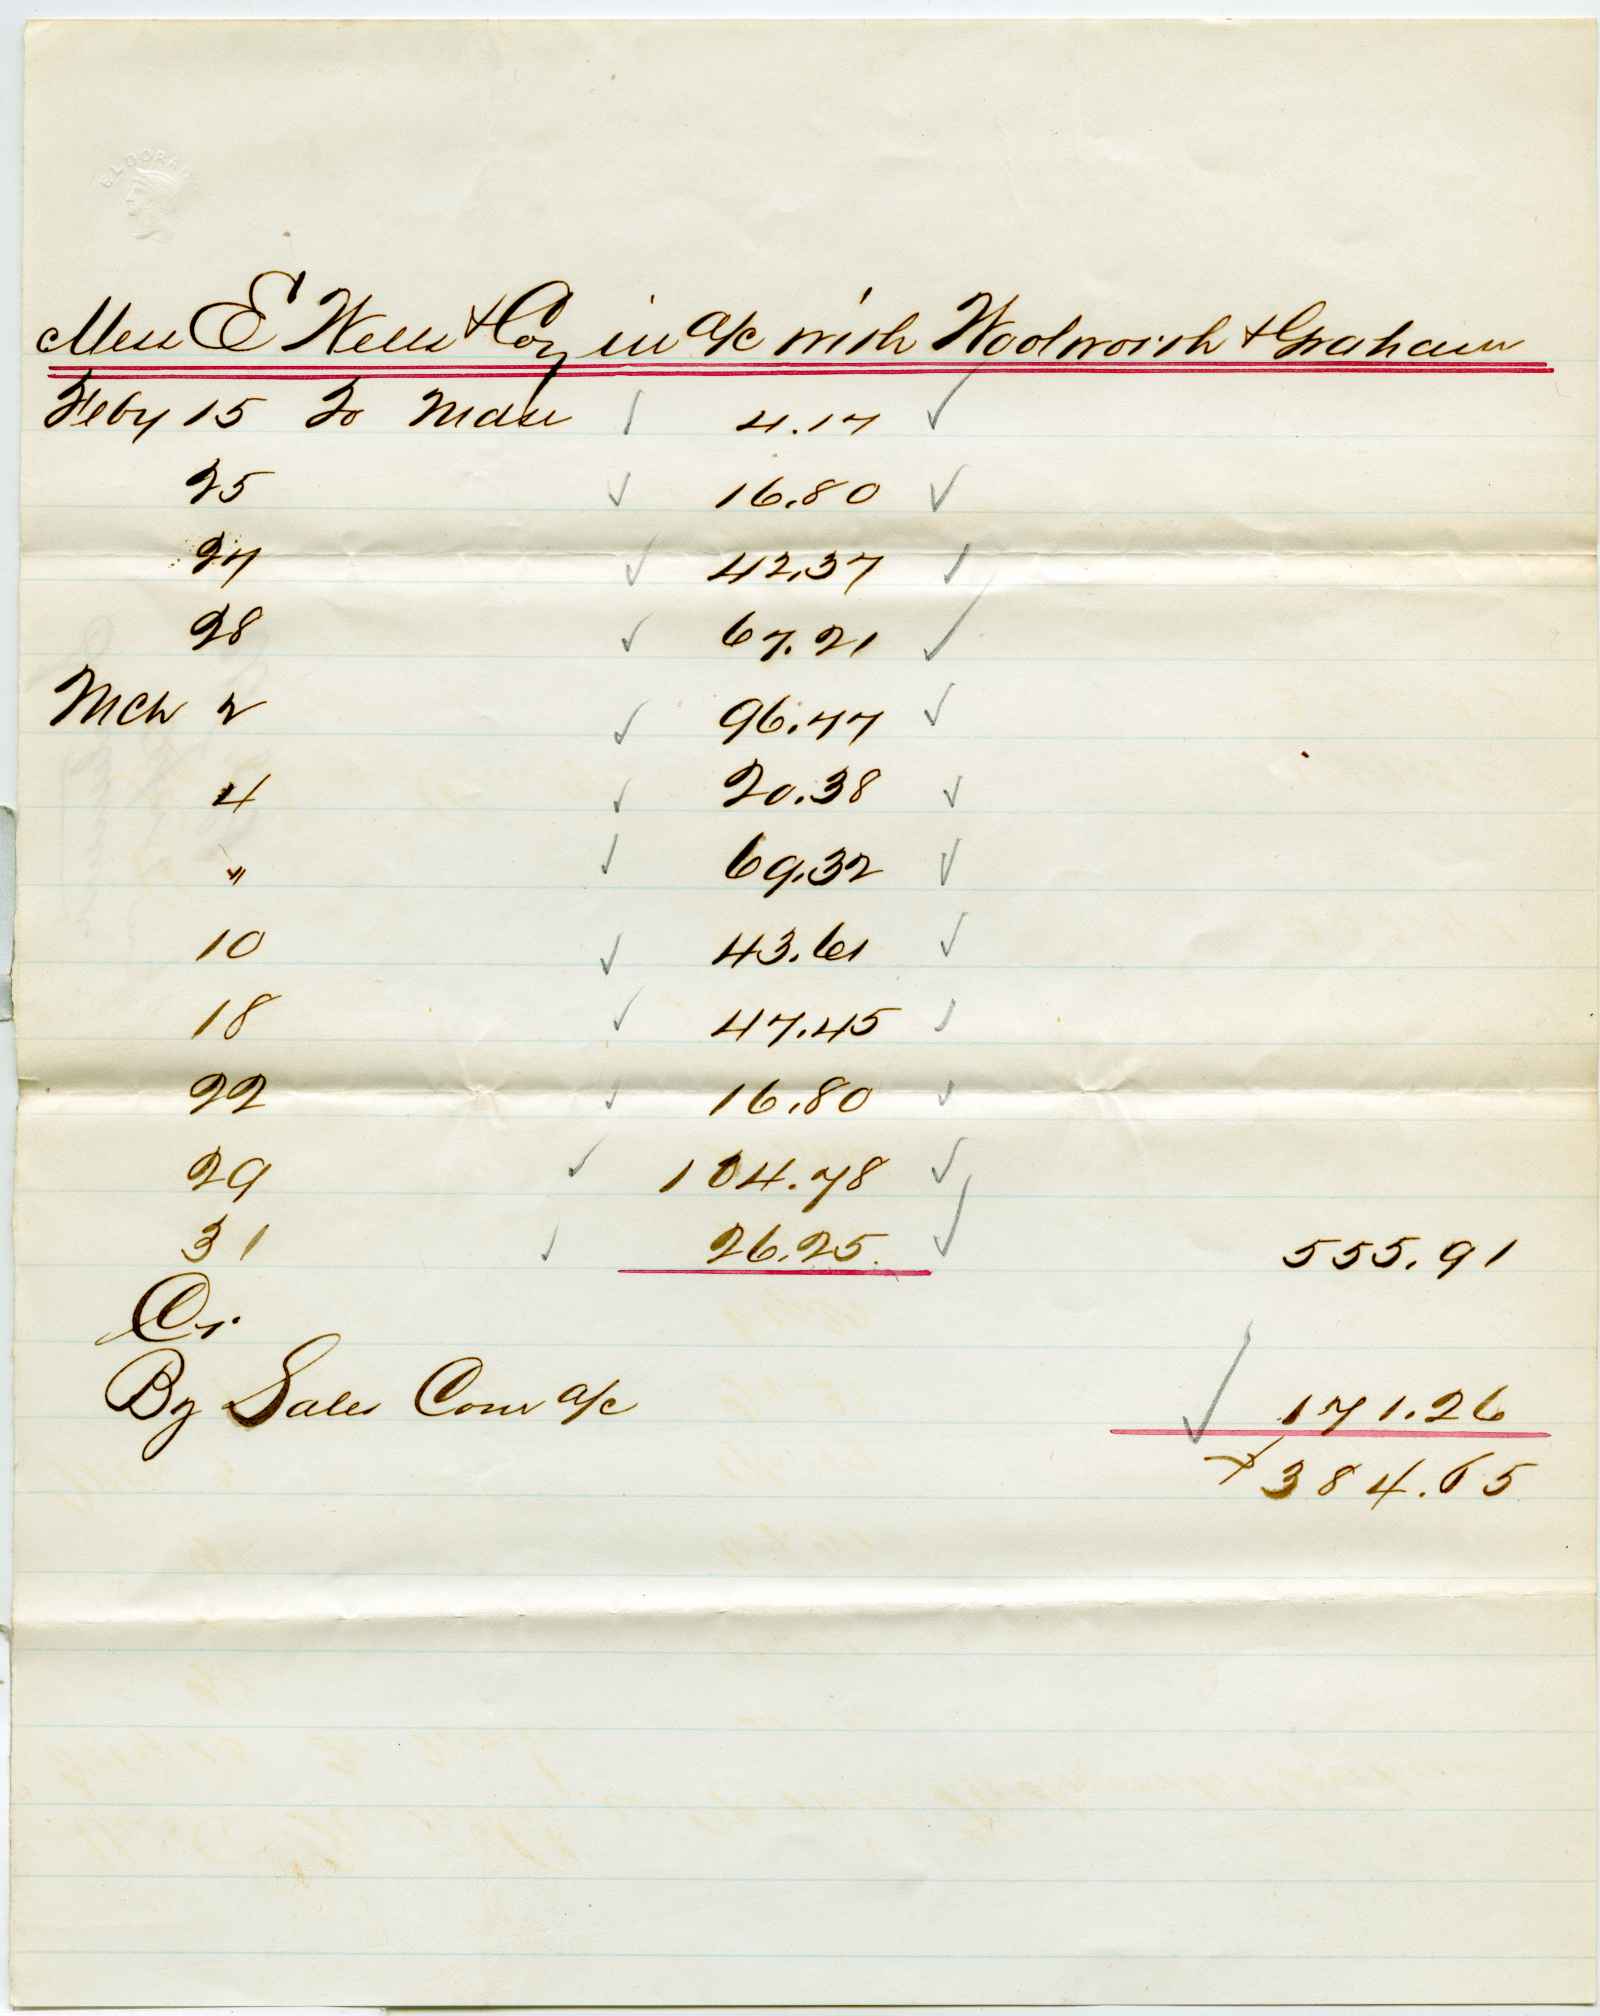 Mess E Wells & Coy in a/c with Woolworth & Graham
Feby 15 To Mdse 4.17
25 16.80
27 42.37
28 67.21
Mch 2 96.77
4 20.38
" 69.32
10 43.61
18 47.45
22 16.80
29 104.78
31 26.25 555.91
Cr.
By Sales Com a/c 171.26
384.65